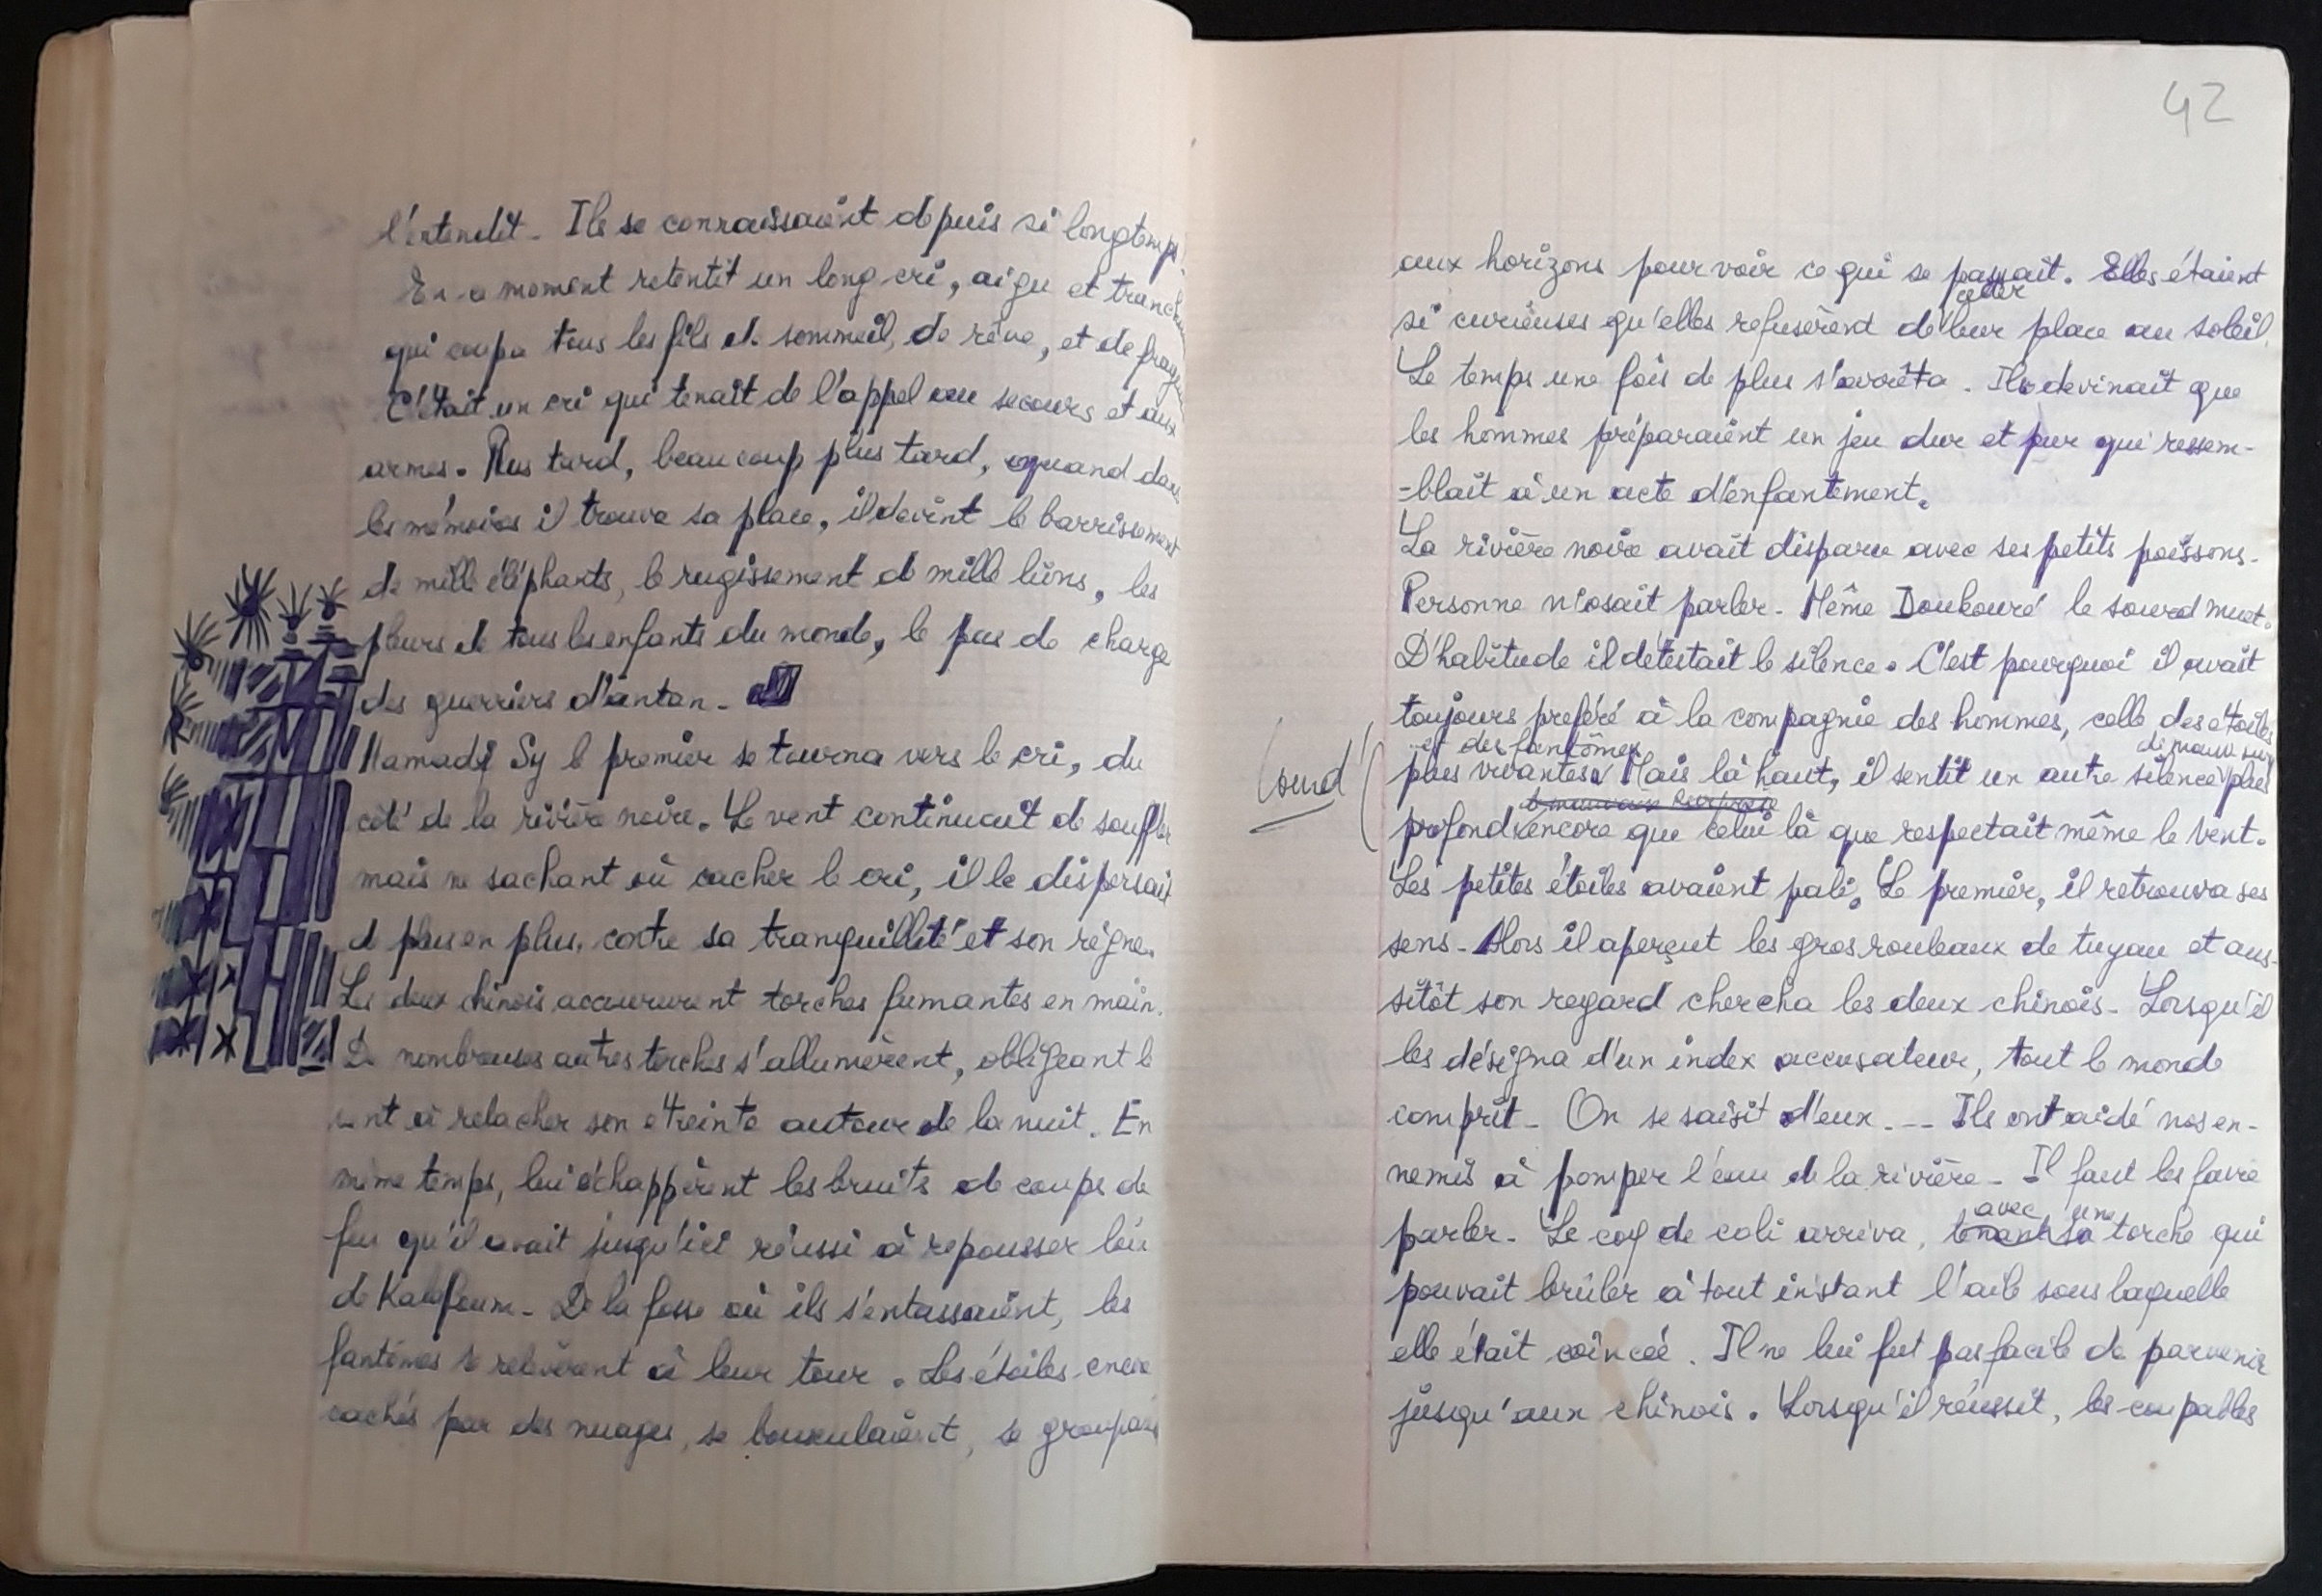 l'entendit. Ils se connaissaient depuis si longtemps.
En ce moment retentit un long cri, aigu et tranchant
qui coupa tous les fils de sommeil, de rêve, et de
C'était un cri qui tenait de l'appel au secours et aux
armes. Plus tard, beaucoup plus tard, quand dans
les mémoires il trouva sa place, il devint le barrissement
de mille éléphants, le rugissement de mille lions, les
pleurs de tous les enfants du monde, le pas de charge
des guerriers d'antan.
Mamady Sy le premier se tourna vers le cri, du
coté de la rivière noire. Le vent continuait de souffler
mais ne sachant où cacher le cri, il le dispersait
de plus en plus, contre sa tranquillité et son règne.
Les deux chinois accoururent torches fumantes en main.
De nombreuses autres torches s'allumèrent, obligeant le
vent à relacher son étreinte autour de la nuit. En
même temps, lui échappèrent les bruits de coups de
feu qu'il avait jusqu'ici réussi à repousser loin
de De la fosse où ils s'entassaient, les
fantômes se relevèrent à leur tour. Les étoiles encore
cachés par des nuages, se bousculaient, se groupaient
42
aux horizons pour voir ce qui se passait. Elles étaient
céder
si curieuses qu'elles refusèrent de leur place au soleil.
Le temps une fois de plus s'arrêta. Il devinait que
les hommes préparaient un jeu dur et pur qui ressem-
-blait à un acte d'enfantement.
La rivière noire avait disparu avec ses petits poissons.
Personne n'osait parler. Même Doukouré le sourd muet.
D'habitude il détestait le silence. C'est pourquoi il avait
toujours preféré à la compagnie des hommes, celle des étoiles
et des fantômes
plus vivantes. Mais là haut, il sentit un autre silence plus
lourd
profond encore que celui là que respectait même le vent.
Les petites étoiles avaient pali. Le premier, il retrouva ses
sens. Alors il aperçut les gros rouleaux de tuyau et aus-
sitôt son regard chercha les deux chinois. Lorsqu'il
les désigna d'un index accusateur, tout le monde
comprit. On se saisit d'eux... Ils ont aidé nos en-
nemis à pomper l'eau de la rivière. Il faut les faire
avec une
parler. Le coq de coli arriva, tenant sa torche qui
pouvait brûler à tout instant l'aile sous laquelle
elle était coincée. Il ne lui fut pas facile de parvenir
jusqu'aux chinois. Lorsqu'il réussit, les coupables